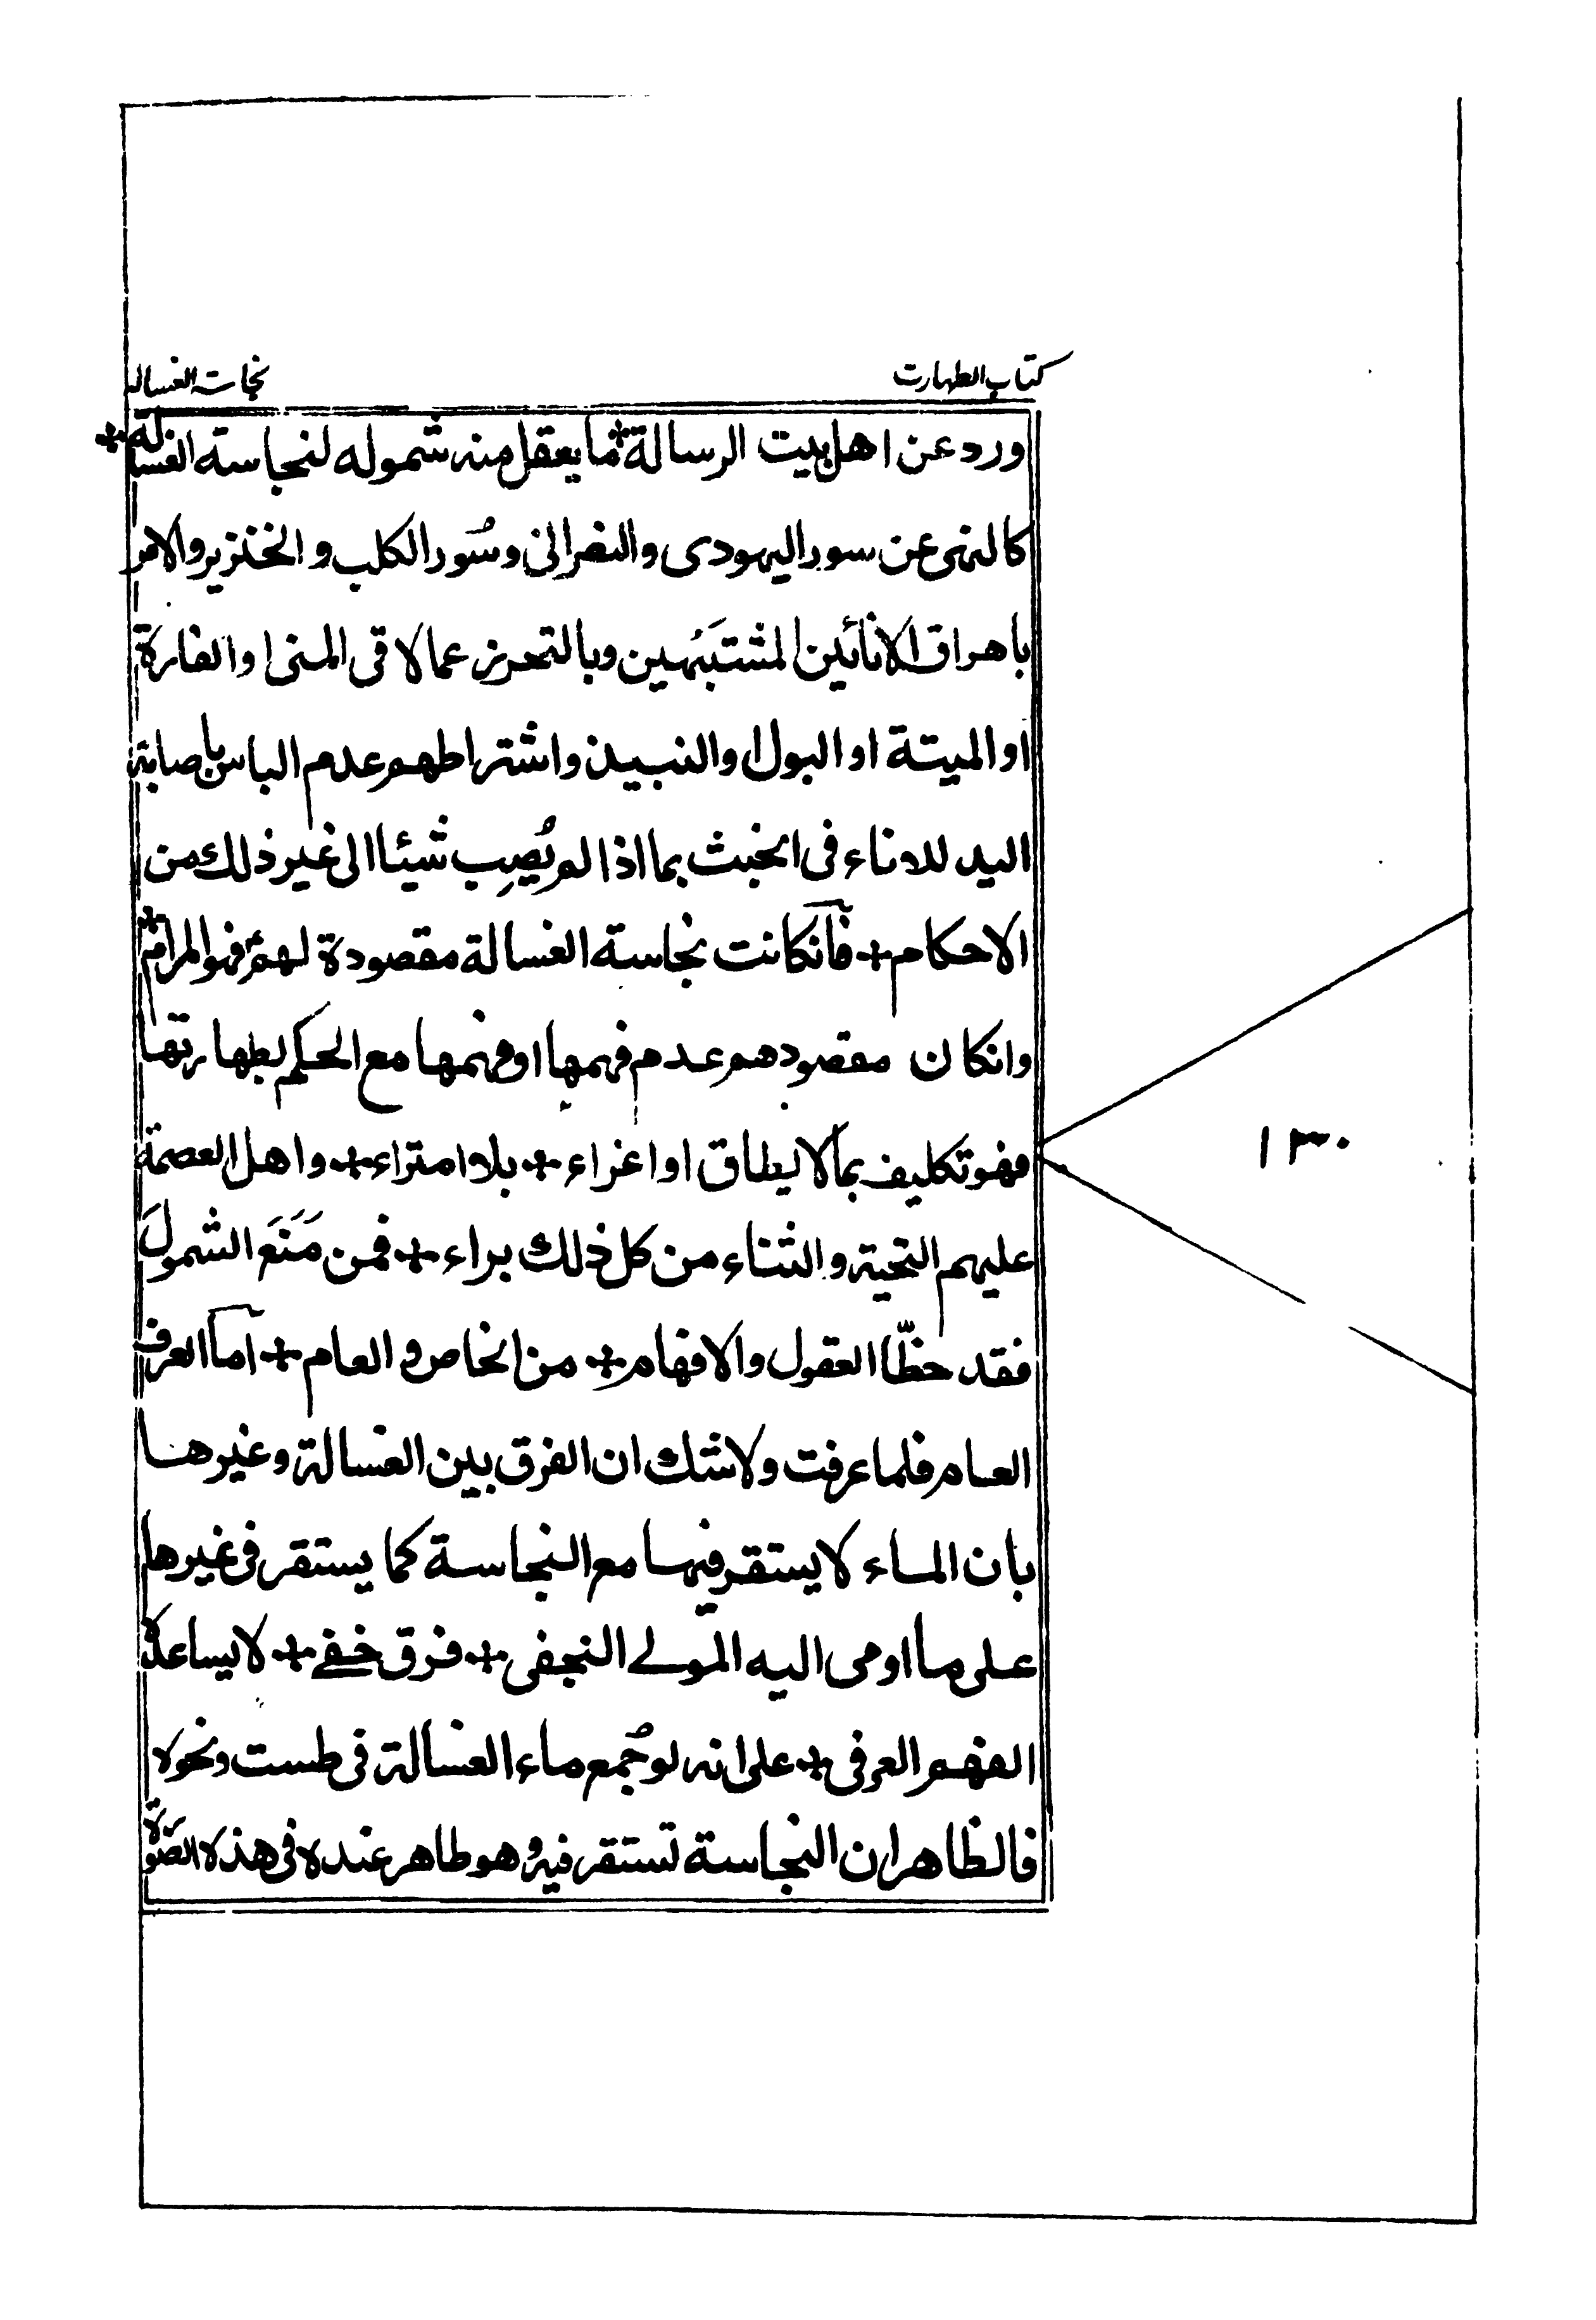 كتاب الطهارت
نجاست الغساله
ورد عن اهل بيت الرسالة ÷ ما يعقل منه شموله لنجاسة الغسالة ÷
كالنهى عن سور اليهودى والنصرانى وسُور الكلب والخنزير والامر
باهراق الانائين المشتبَهين وبالتحرز عما لاقى المنى او الفارة
او الميتة او البول او النبيذ واشتراطهم عدم الباس باصابة
اليد للاناء فى الخبث بما اذا لم يُصِب شيئا الى غير ذلك من
الاحكام ÷ فآنكانت نجاسة الغسالة مقصودة لهم فهو المرام ÷
وانكان مقصودهم عدم فهمها او فهمها مع الحكم بطهارتها
فهو تكليف بمالا يطاق او اغراء ÷ بلا امتراء ÷ واهل العصمة
عليهم التحية والثناء من كل ذلك براء ÷ فمن مَنَعَ الشمولَ
فقد حظّا العقول والافهام ÷ من الخاص و العام ÷ آما العرف
العام فلما عرفت ولاشك ان الفرق بين الغسالة وغيرها
بان الماء لا يستقر فيها مع النجاسة كما يستقر فى غيرها
على ما اومى اليه المولے النجفى ÷ فرق خفے ÷ لا يساعده
الفهم العرفى ÷ على انه لو جُمع ماء الغسالة فى طست ونحوه
فالظاهر ان النجاسة تستقر فيه وهو طاهر عنده فى هذه الصّورة
١٣٠